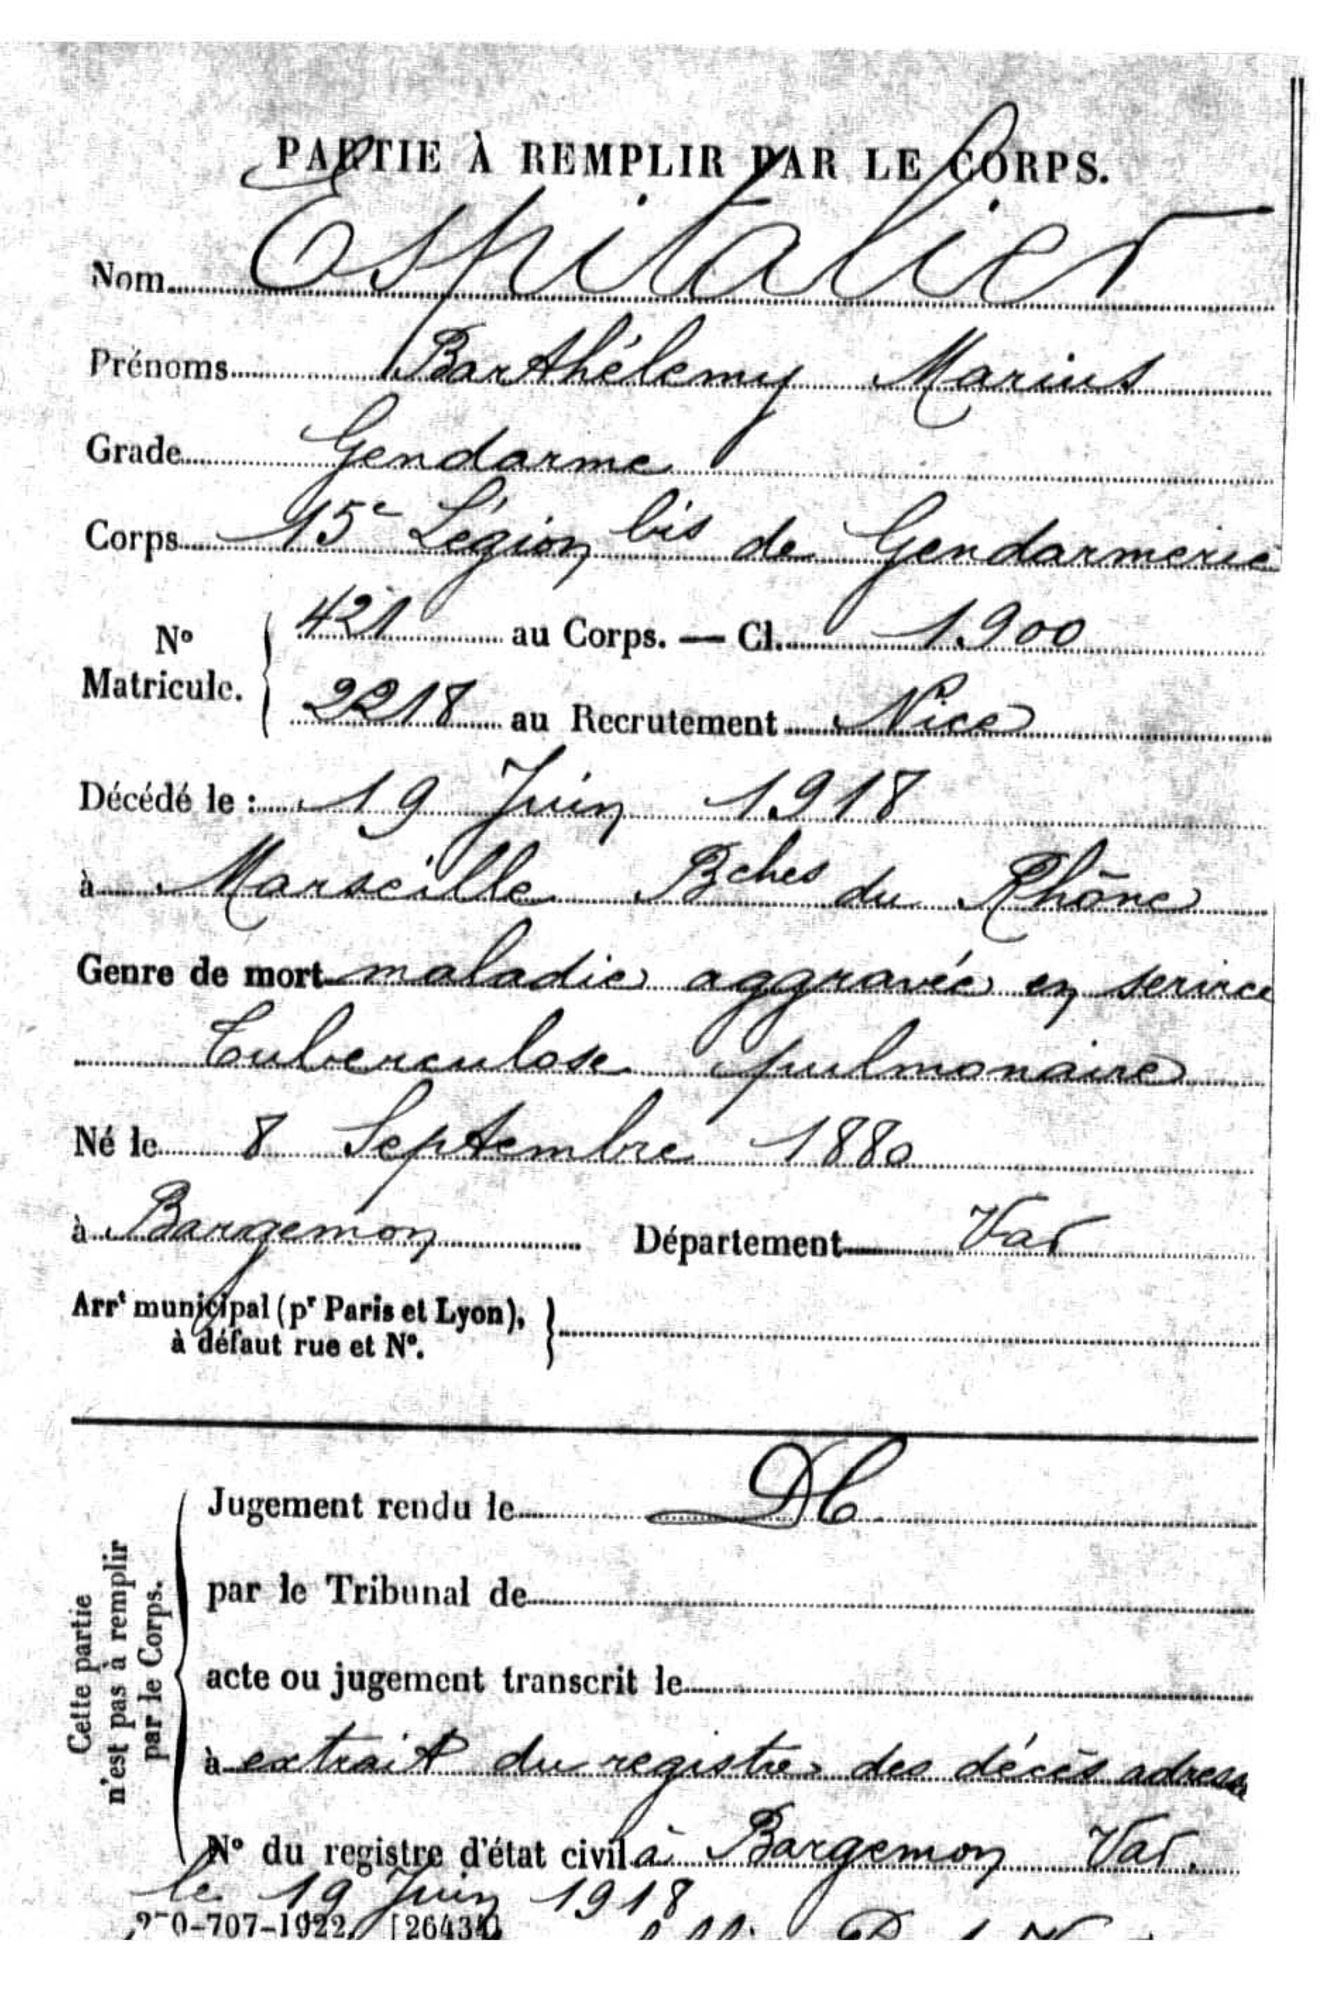 PARTIE À REMPLIR PAR LE CORPS.
Nom Espitalier
Prénoms Barthélemy Marius
Grade Gendarme
Corps 15e Légion bis de Gendarmerie
No Matricule. 421 au Corps. — Cl. 1900
2218 au Recrutement Nice
Décédé le : 19 Juin 1918
à Marseille Bches du Rhône
Genre de mort maladie aggravée en service
Tuberculose pulmonaire
Né le 8 Septembre 1880
à Bargemon Département Var
Arrt municipal (pr Paris et Lyon),
à défaut rue et No.
Cette partie
n'est pas à remplir
par le Corps.
Jugement rendu le
par le Tribunal de
acte ou jugement transcrit le
à extrait du registre des décès adressé
No du registre d'état civil à Bargemon Var.
le 19 Juin 1918
0-707-1922. [26434]